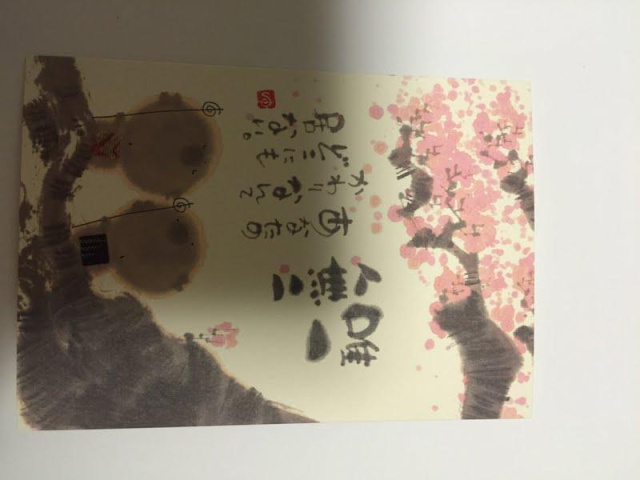 唯一
無二
あなたの
かわりなんて
どこにも
居ない。